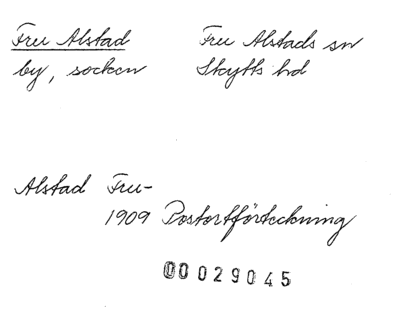 Fru Alstad Fru Alstads sn
by, socken Skytts hd
Alstad Fru-
1909 Postortförteckning
00029045